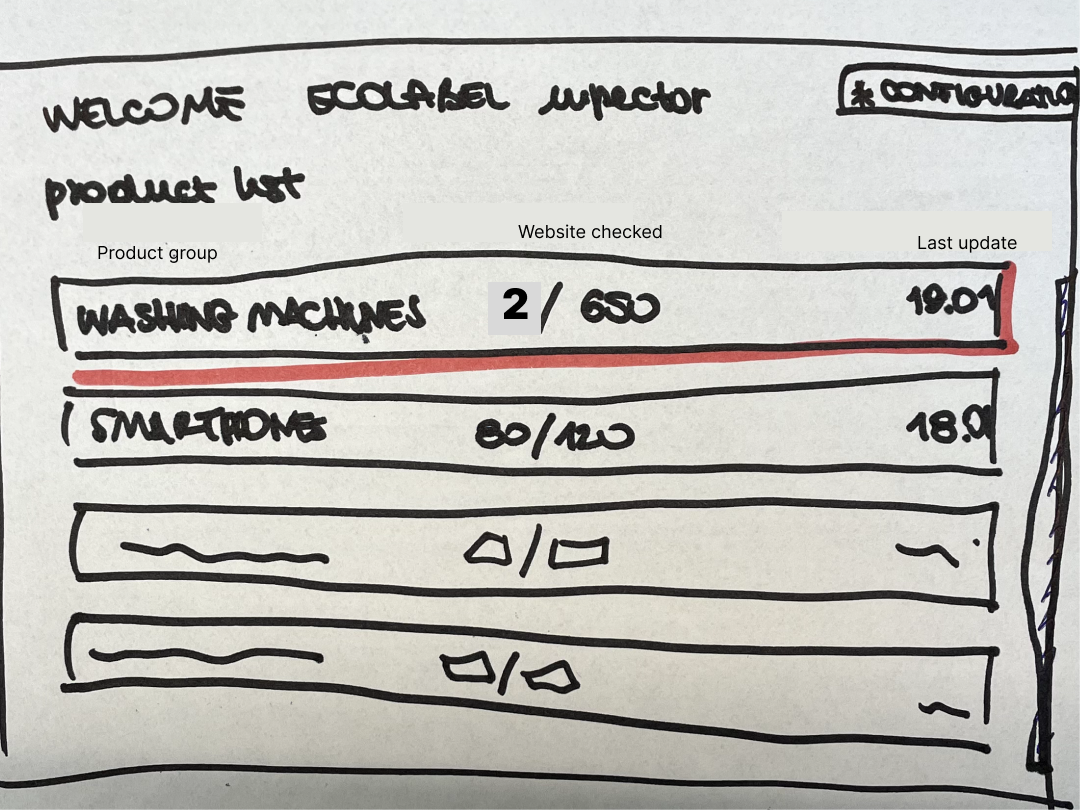 WELCOME ECOLABEL inspector
* CONFIGURATIO
product list
Product group
Website checked
Last update
WASHING MACHINES 2 / 650 19.01
SMARTHONES 80/120 18.01